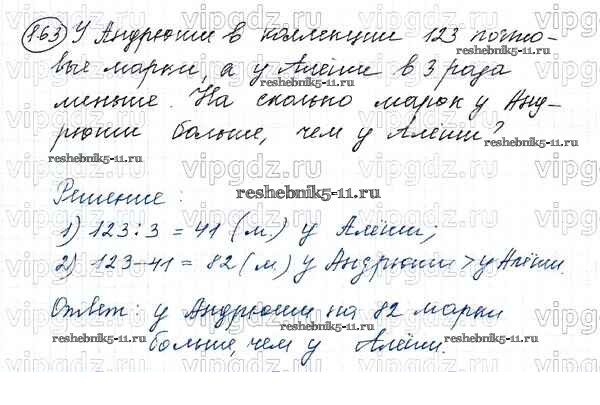 863 У Андрюши в коллекции 123 почто-
вые марки, а у Алёши в 3 раза
меньше. На сколько марок у Анд-
рюши больше, чем у Алёши?
reshebnik5-11.ru
Решение:
1) 123:3 = 41 (м.) у Алёши;
2) 123-41 = 82 (м.) у Андрюши > у Алёши.
Ответ: у Андрюши на 82 марки
больше, чем у Алёши.
reshebnik5-11.ru
vipgdz.ru